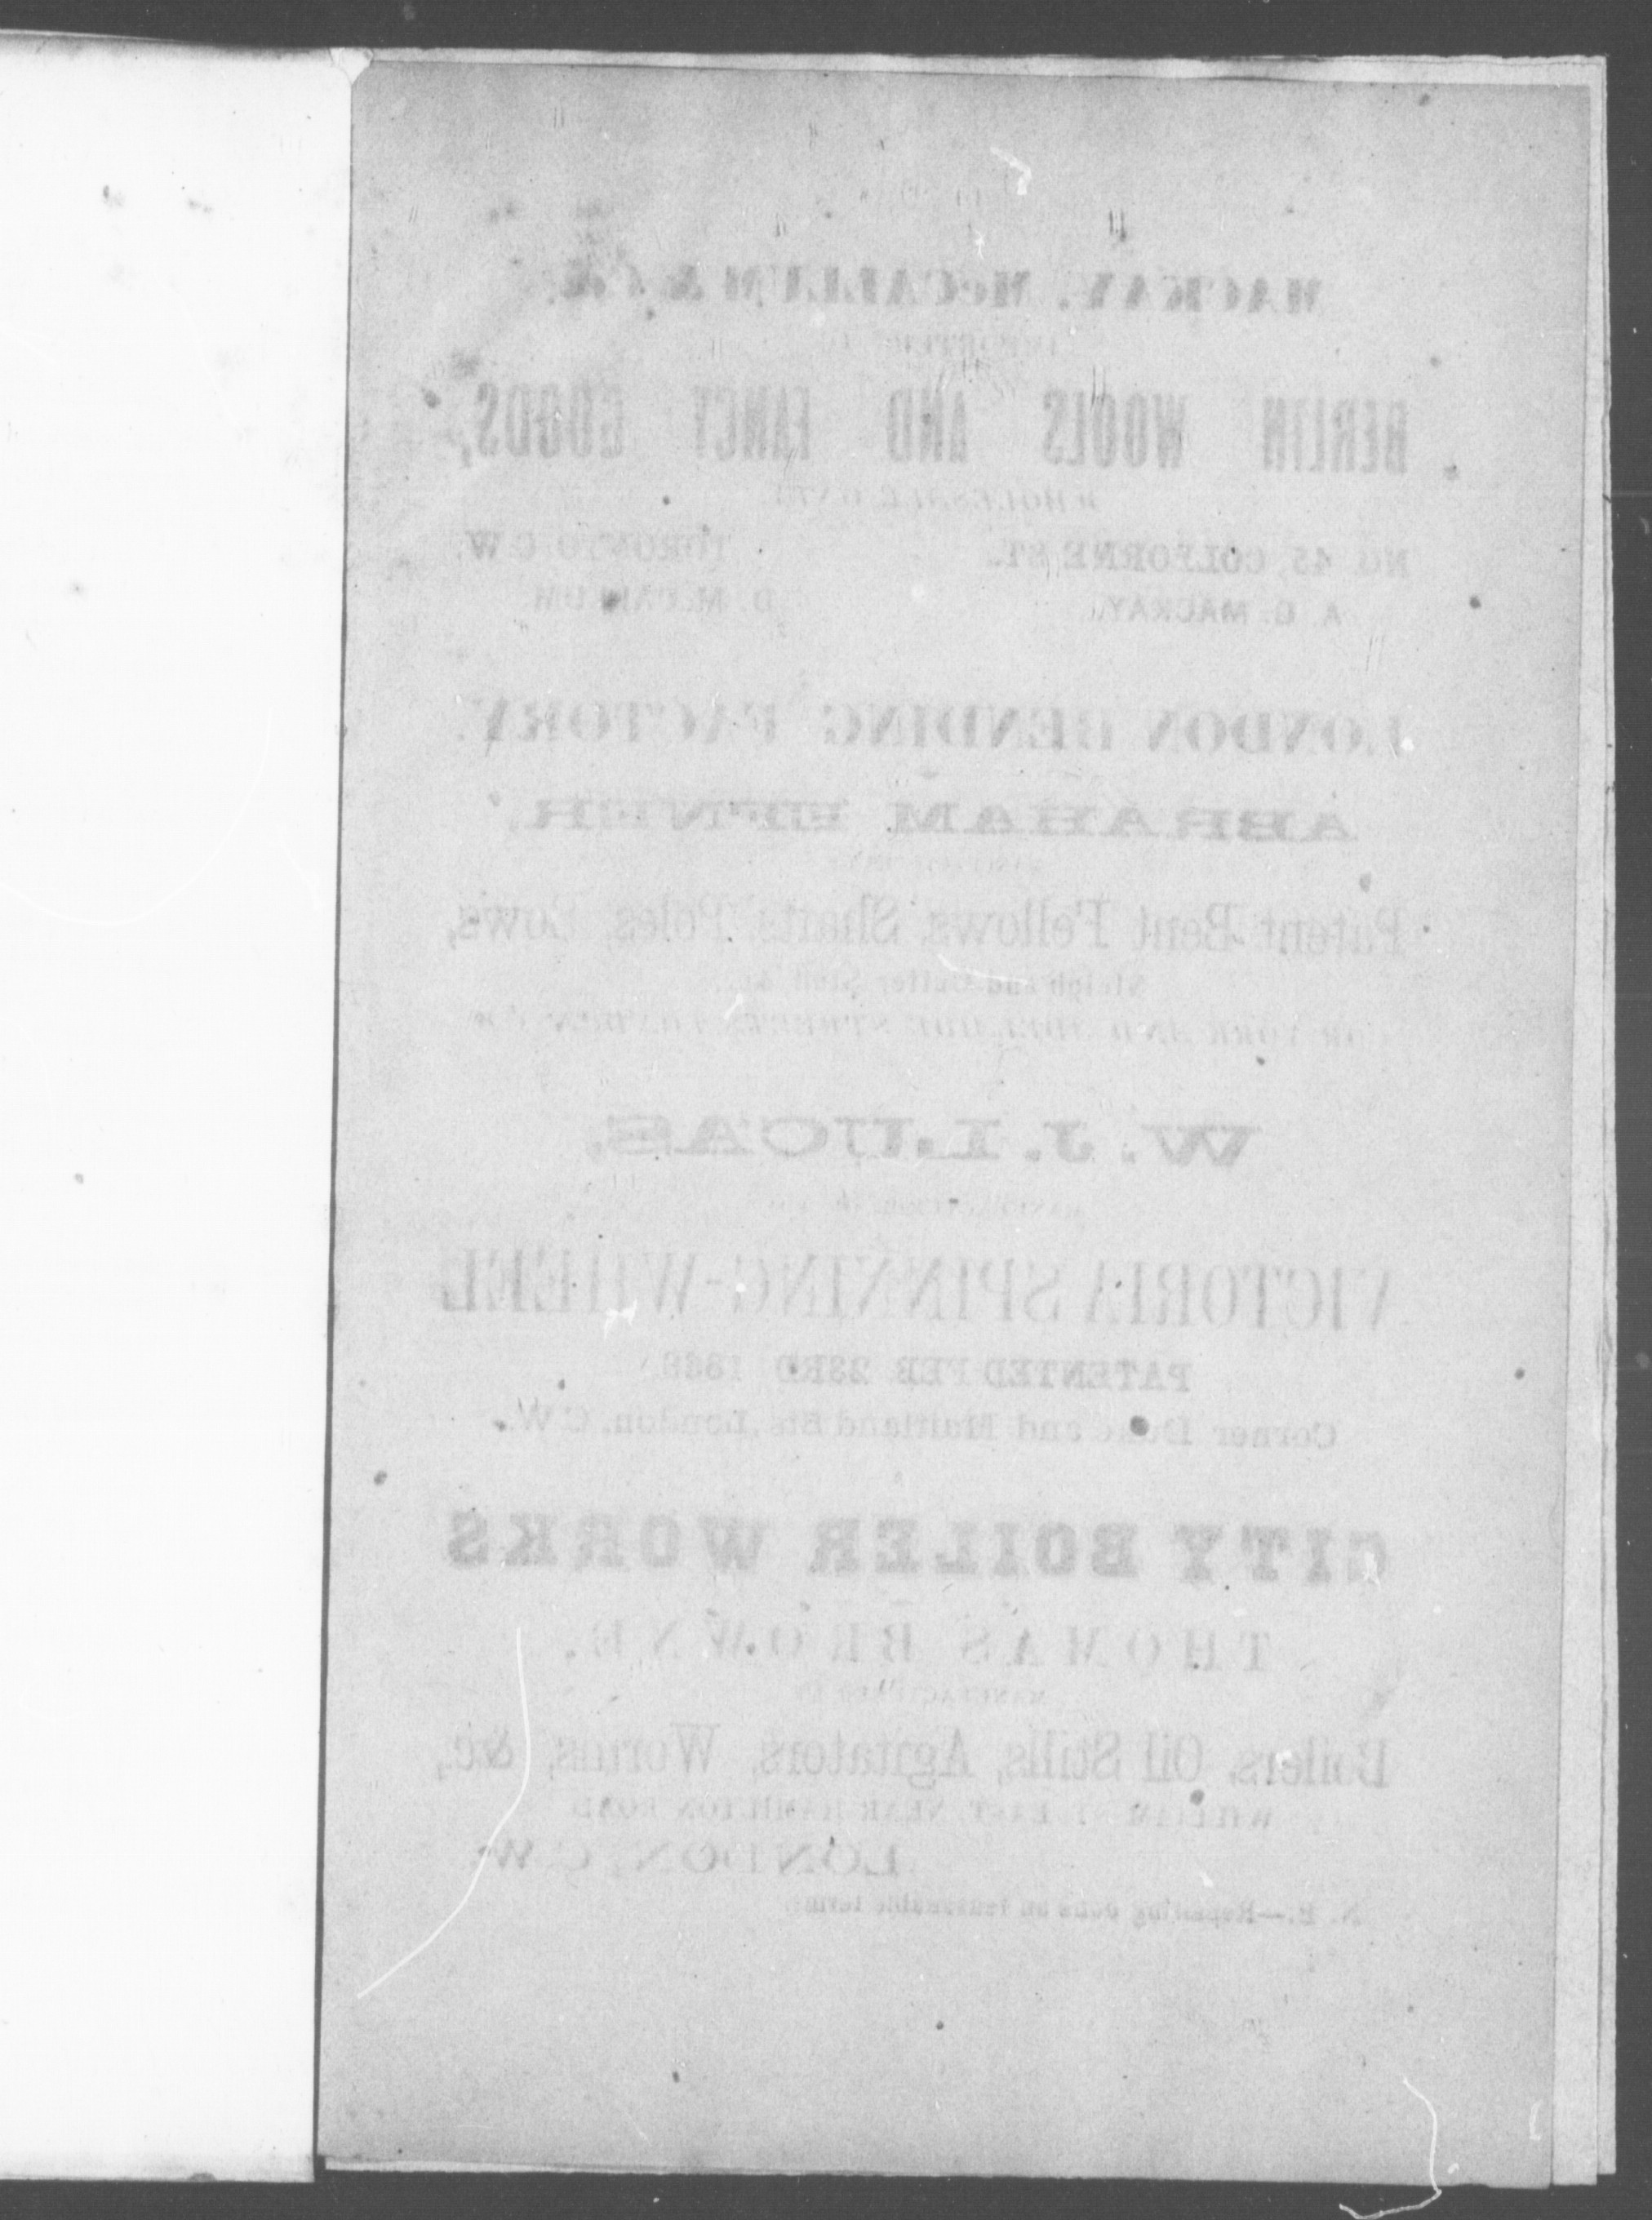 MACKAY, McCALLUM & Co.
IMPORTERS OF
BERLIN WOOLS AND FANCY GOODS,
WHOLESALE ONLY.
NO. 45, COLBORNE ST. TORONTO C W.
A. G. MACKAY. D. McCALLUM.
LONDON BENDING FACTORY.
ABRAHAM
Patent Bent Fellows, Shafts, Poles, Bows,
Sleigh and Cutter Stuff, &c.,
YORK AND STREETS LONDON C W
W. J. LUCAS,
MANUFACTURER OF THE
VICTORIA SPINNING-WHEEL
PATENTED FEB 23RD
Corner and Maitland Sts, London, C W.
CITY BOILER WORKS
THOMAS BROWNE,
MANUFACTURER OF
Boilers, Oil Stills, Agitators, Worms, &c.,
WILLIAM ST. EAST, NEAR HAMILTON ROAD
LONDON, C W.
N. B.—Repairing done on reasonable terms.